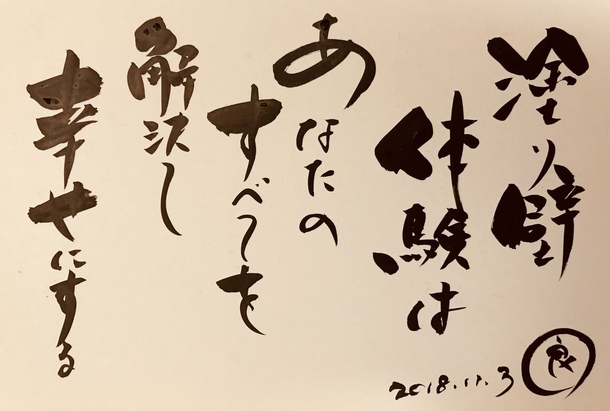 塗り壁
体験は
あなたの
すべてを
解決し
幸せにする
2018.11.3
良